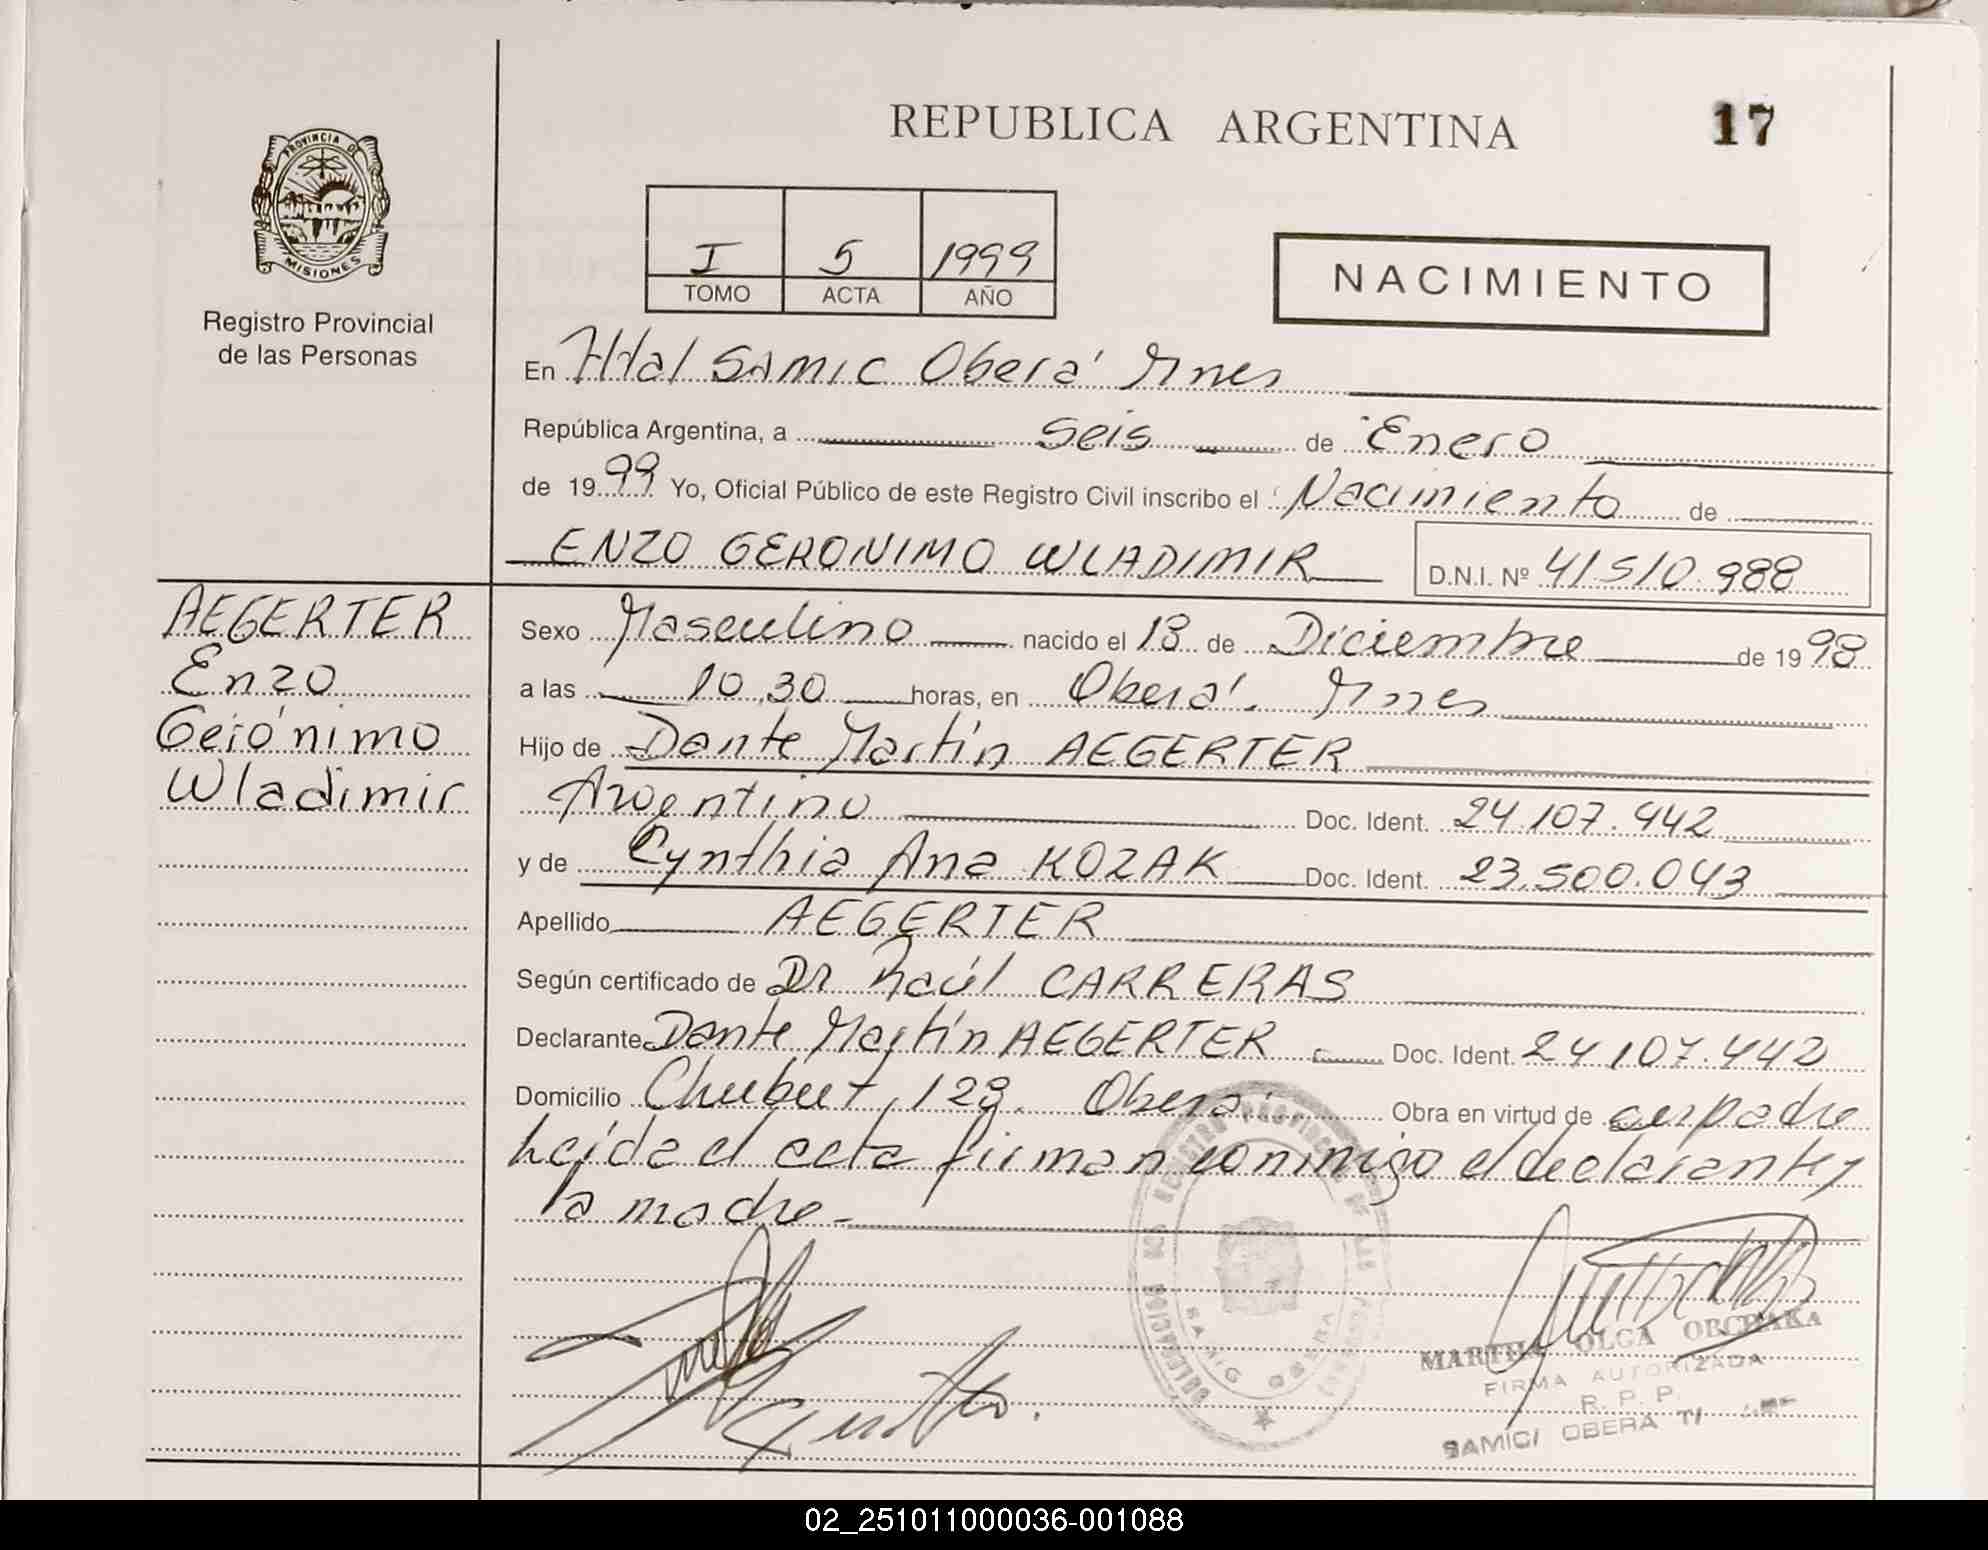 REPUBLICA ARGENTINA
17
PROVINCIA DE
MISIONES
Registro Provincial
de las Personas
I 5 1999
TOMO ACTA AÑO
NACIMIENTO
En Htal SAMIC Oberá Mnes
República Argentina, a seis de Enero
de 1999 Yo, Oficial Público de este Registro Civil inscribo el Nacimiento de
ENZO GERONIMO WLADIMIR D.N.I. Nº 41510.988
AEGERTER
Enzo
Gerónimo
Wladimir
Sexo Masculino nacido el 18 de Diciembre de 1998
a las 10,30 horas, en Oberá. Mnes
Hijo de Dante Martín AEGERTER
Argentino Doc. Ident. 24.107.442
y de Cynthia Ana KOZAK Doc. Ident. 23.500.043
Apellido AEGERTER
Según certificado de Dr Raúl CARRERAS
Declarante Dante Martín AEGERTER Doc. Ident. 24.107.442
Domicilio Chubut 128. Oberá. Obra en virtud de ser padre
Leída el acta firman conmigo el declarante y
la madre.-
MARTHA OLGA OBCHAKA
FIRMA AUTORIZADA
R. P. P.
SAMIC/ OBERA
02_251011000036-001088